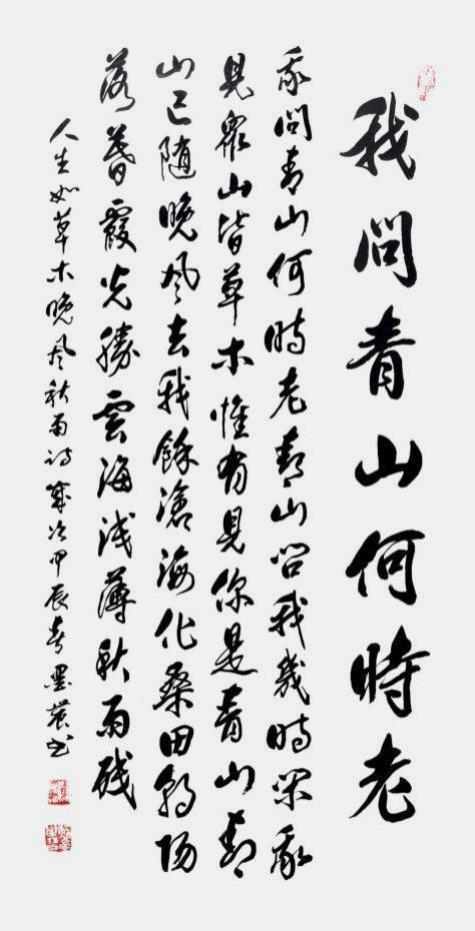 我問青山何時老
我問青山何時老青山问我幾時闲我
見眾山皆草木惟有見你是青山青
山已随晚风去我餘滄海化桑田朝阳
落暮霞光勝雲海浅薄秋雨残
人生如草木晚风秋雨诗歲次甲辰春墨農书